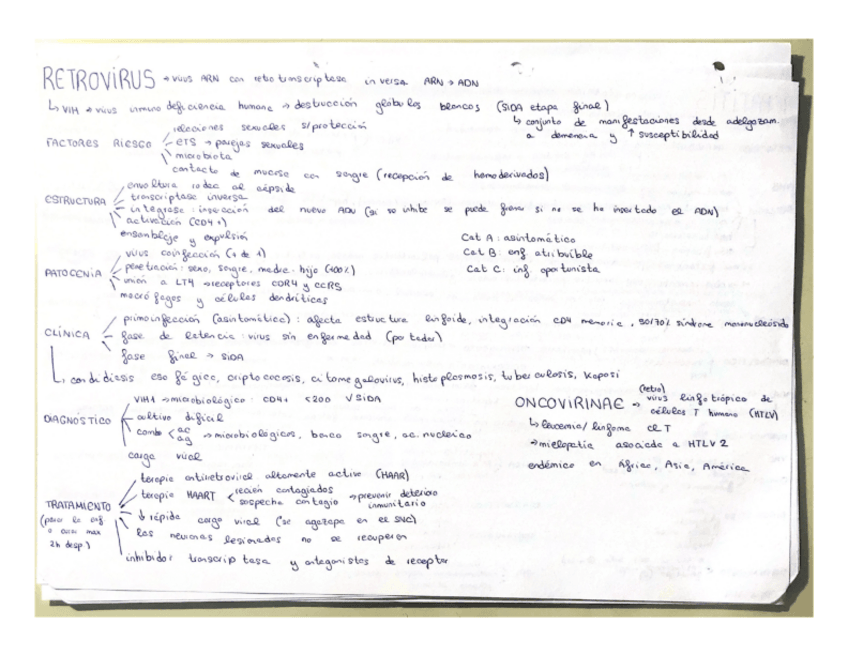 RETROVIRUS → virus ARN con retrotranscriptasa inversa ARN → ADN
↳ VIH → virus inmunodeficiencia humana → destrucción glóbulos blancos (SIDA etapa final)
↳ conjunto de manifestaciones desde adelgazam. a demencia y ↑ susceptibilidad
FACTORES RIESGO
relaciones sexuales s/protección
ETS → parejas sexuales
microbiota
contacto de mucosa con sangre (recepción de hemoderivados)
ESTRUCTURA
envoltura rodea al cápside
transcriptasa inversa
integrasa: inserción del nuevo ADN (si se inhibe se puede frenar si no se ha insertado el ADN)
activación (CD4+)
ensamblaje y expulsión
Cat A: asintomático
Cat B: enf atribuible
Cat C: inf oportunista
PATOGENIA
virus coinfección (+ de 1)
penetración: sexo, sangre, madre-hijo (100%)
unión a LT4 → receptores CDR4 y CCR5
macrófagos y células dendríticas
CLÍNICA
primoinfección (asintomático): afecta estructura linfoide, integración CD4 memoria, 50/70% síndrome mononucleósido
fase de latencia: virus sin enfermedad (portador)
fase final → SIDA
↳ candidiasis esofágica, criptococosis, citomegalovirus, histoplasmosis, tuberculosis, Kaposi
DIAGNÓSTICO
VIH1 → microbiológico: CD4+ <200 V SIDA
cultivo difícil
comb < ac ag → microbiológicos, banco sangre, ac. nucleico
carga viral
ONCOVIRINAE → (retro) virus linfotrópico de células T humano (HTLV)
↳ leucemia/linfoma cl T
→ mielopatía asociada a HTLV 2
endémico en África, Asia, América
TRATAMIENTO
(parar la enf o curar max 2h desp.)
terapia antiretroviral altamente activa (HAAR)
terapia HAART < recién contagiados sospecha contagio → prevenir deterioro inmunitario
↓ rápida carga viral (se agazapa en el SNC)
las neuronas lesionadas no se recuperan
inhibidor transcriptasa y antagonistas de receptor